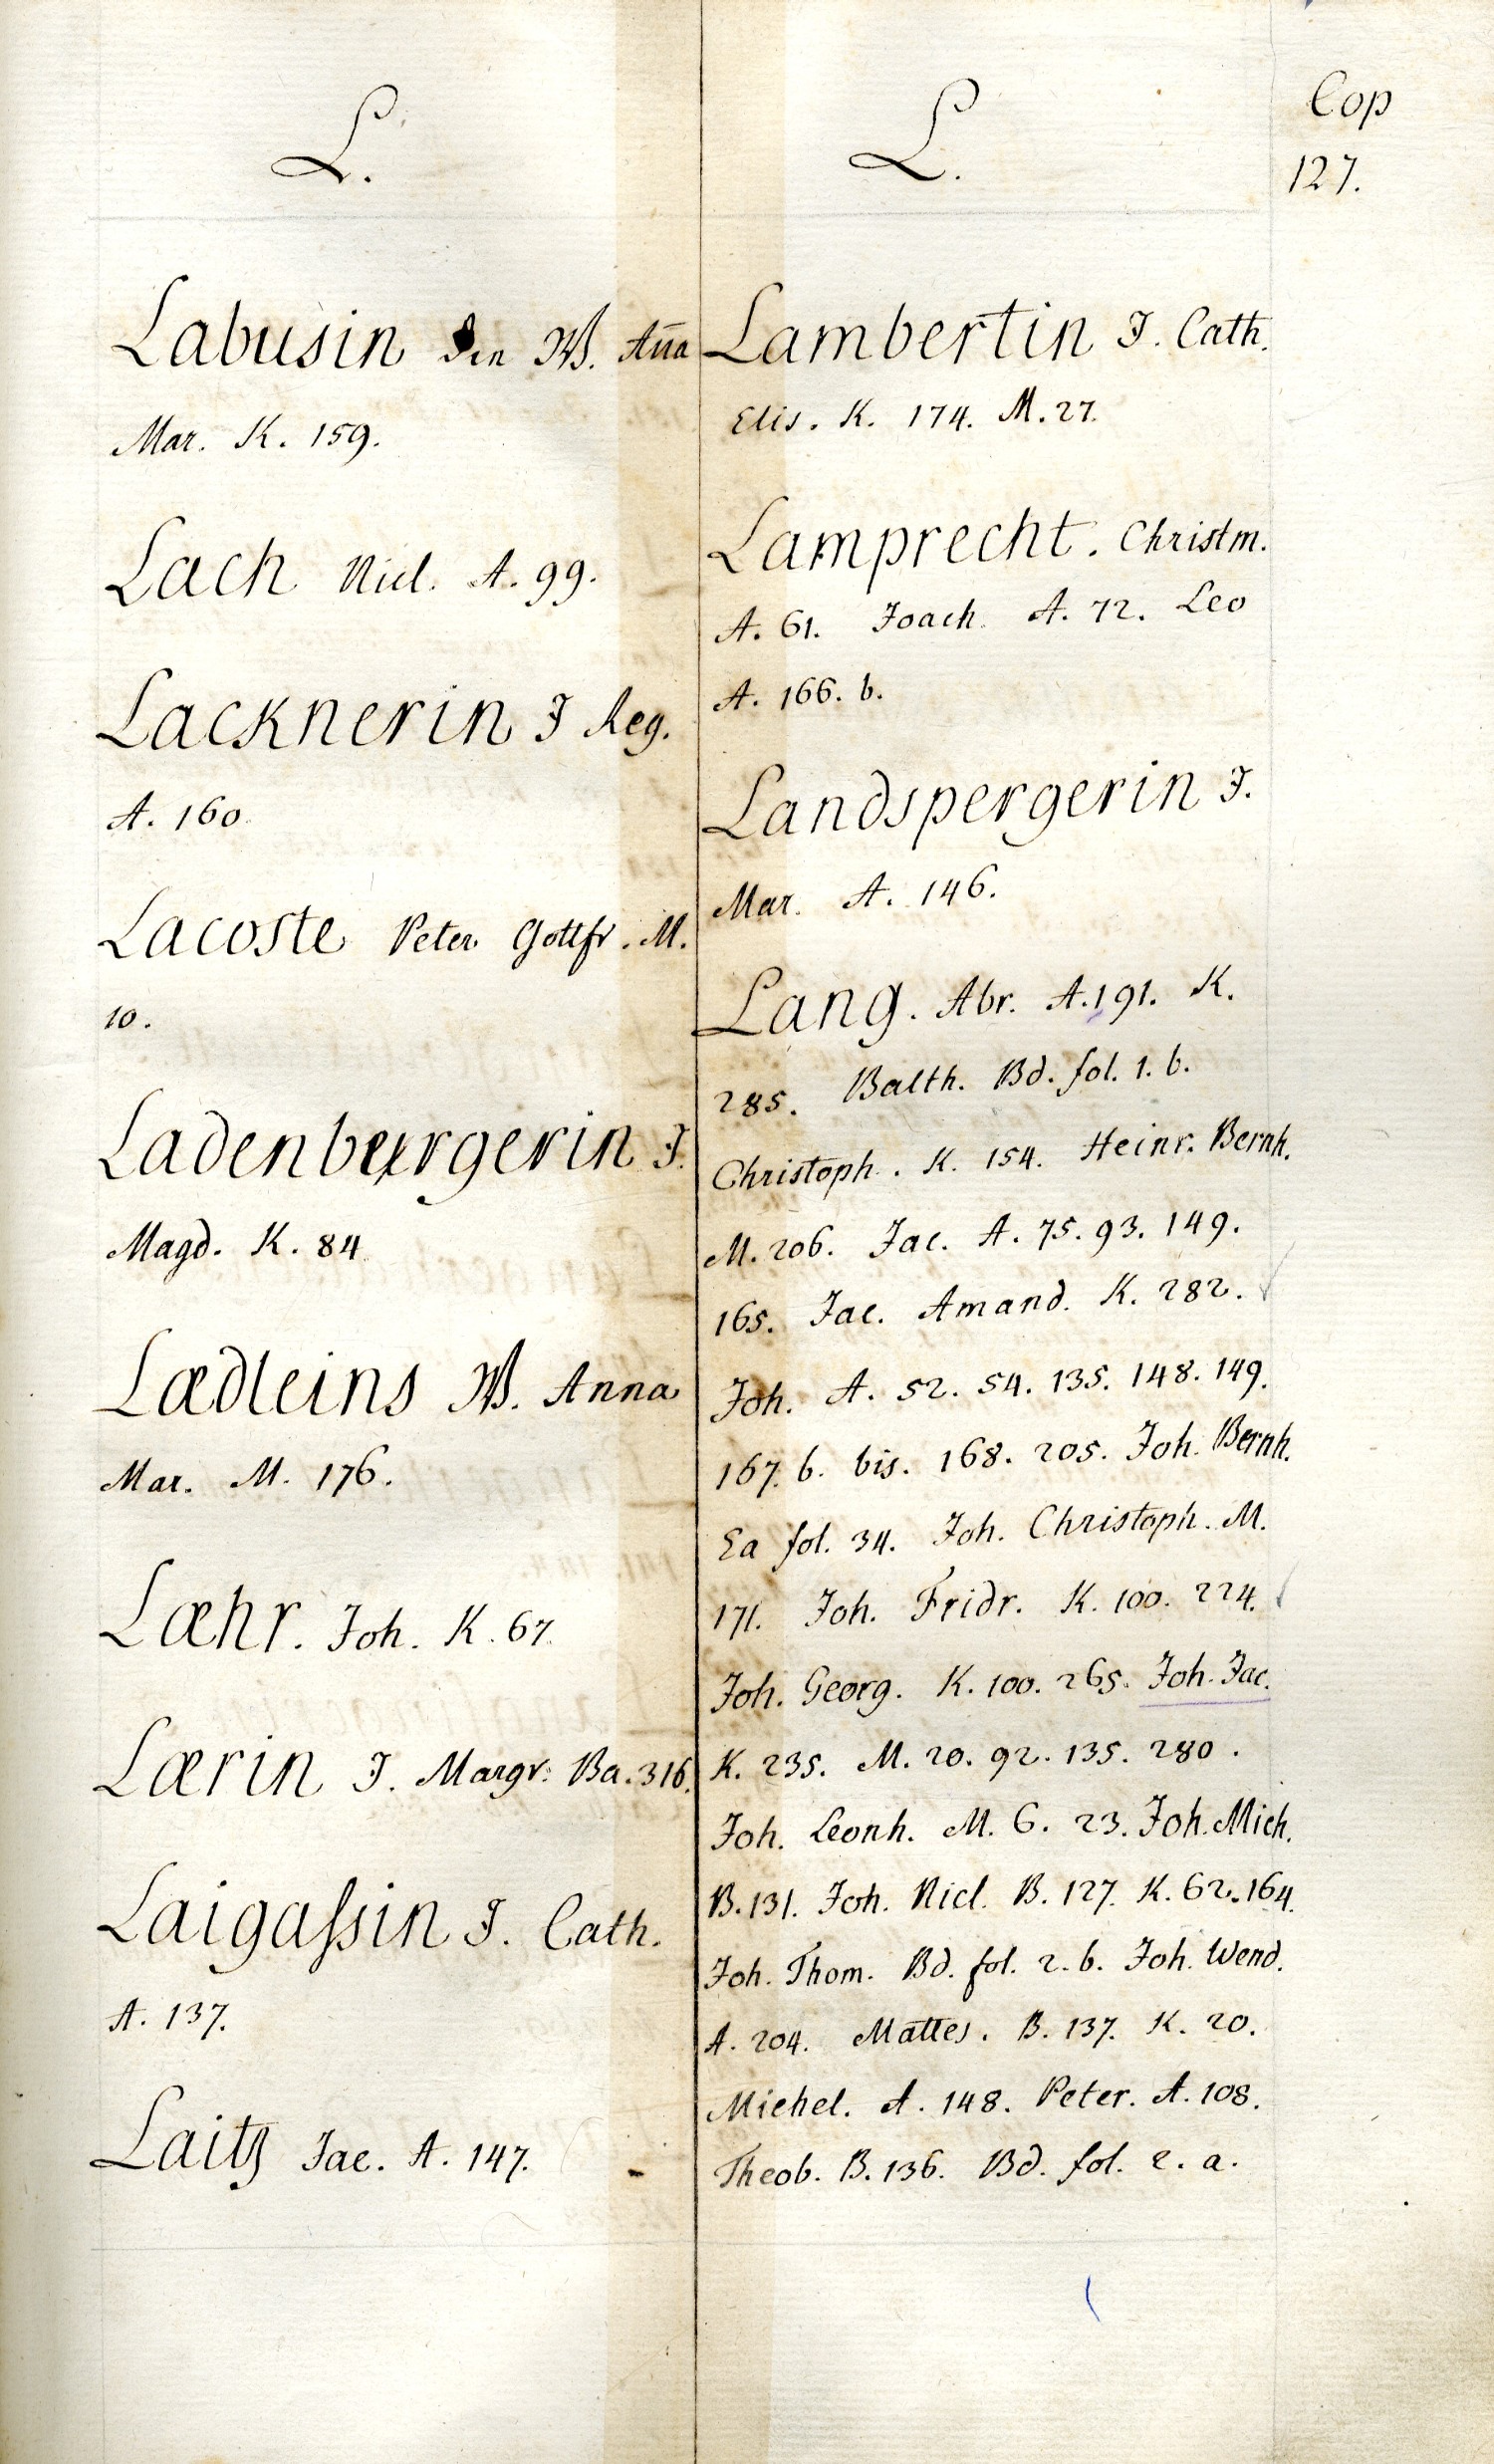 Cop
127.
L.
Labusin den W. Aña
Mar. K. 159.
Lach Nicl. A. 99.
Lacknerin J Reg.
A. 160.
Lacoste Peter Gottfr. M.
10.
Ladenburgerin J.
Magd. K. 84
Lædleins W. Anna
Mar. M. 176.
Læhr. Joh. K. 67.
Lærin J. Margr: Ba. 316.
Laigaſsin J. Cath.
A. 137.
Laitz Jac. A. 147.
L.
Lambertin J. Cath.
Elis. K. 174. M. 27.
Lamprecht. Christm.
A. 61. Joach. A. 72. Leo
A. 166. b.
Landspergerin J.
Mar. A. 146.
Lang. Abr. A. 191. K.
285. Balth. Bd. fol. 1. b.
Christoph. K. 154. Heinr. Bernh.
M. 206. Jac. A. 75. 93. 149.
165. Jac. Amand. K. 282.
Joh. A. 52. 54. 135. 148. 149.
167. b. bis. 168. 205. Joh. Bernh.
Ea fol. 34. Joh. Christoph. M.
171. Joh. Fridr. K. 100. 224.
Joh. Georg. K. 100. 265. Joh. Jac.
K. 235. M. 20. 92. 135. 280.
Joh. Leonh. M. 6. 23. Joh. Mich.
B. 131. Joh. Nicl. B. 127. K. 62. 164.
Joh. Thom. Bd. fol. 2. b. Joh. Wend.
A. 204. Mattes. B. 137. K. 20.
Michel. A. 148. Peter. A. 108.
Theob. B. 136. Bd. fol. 2. a.